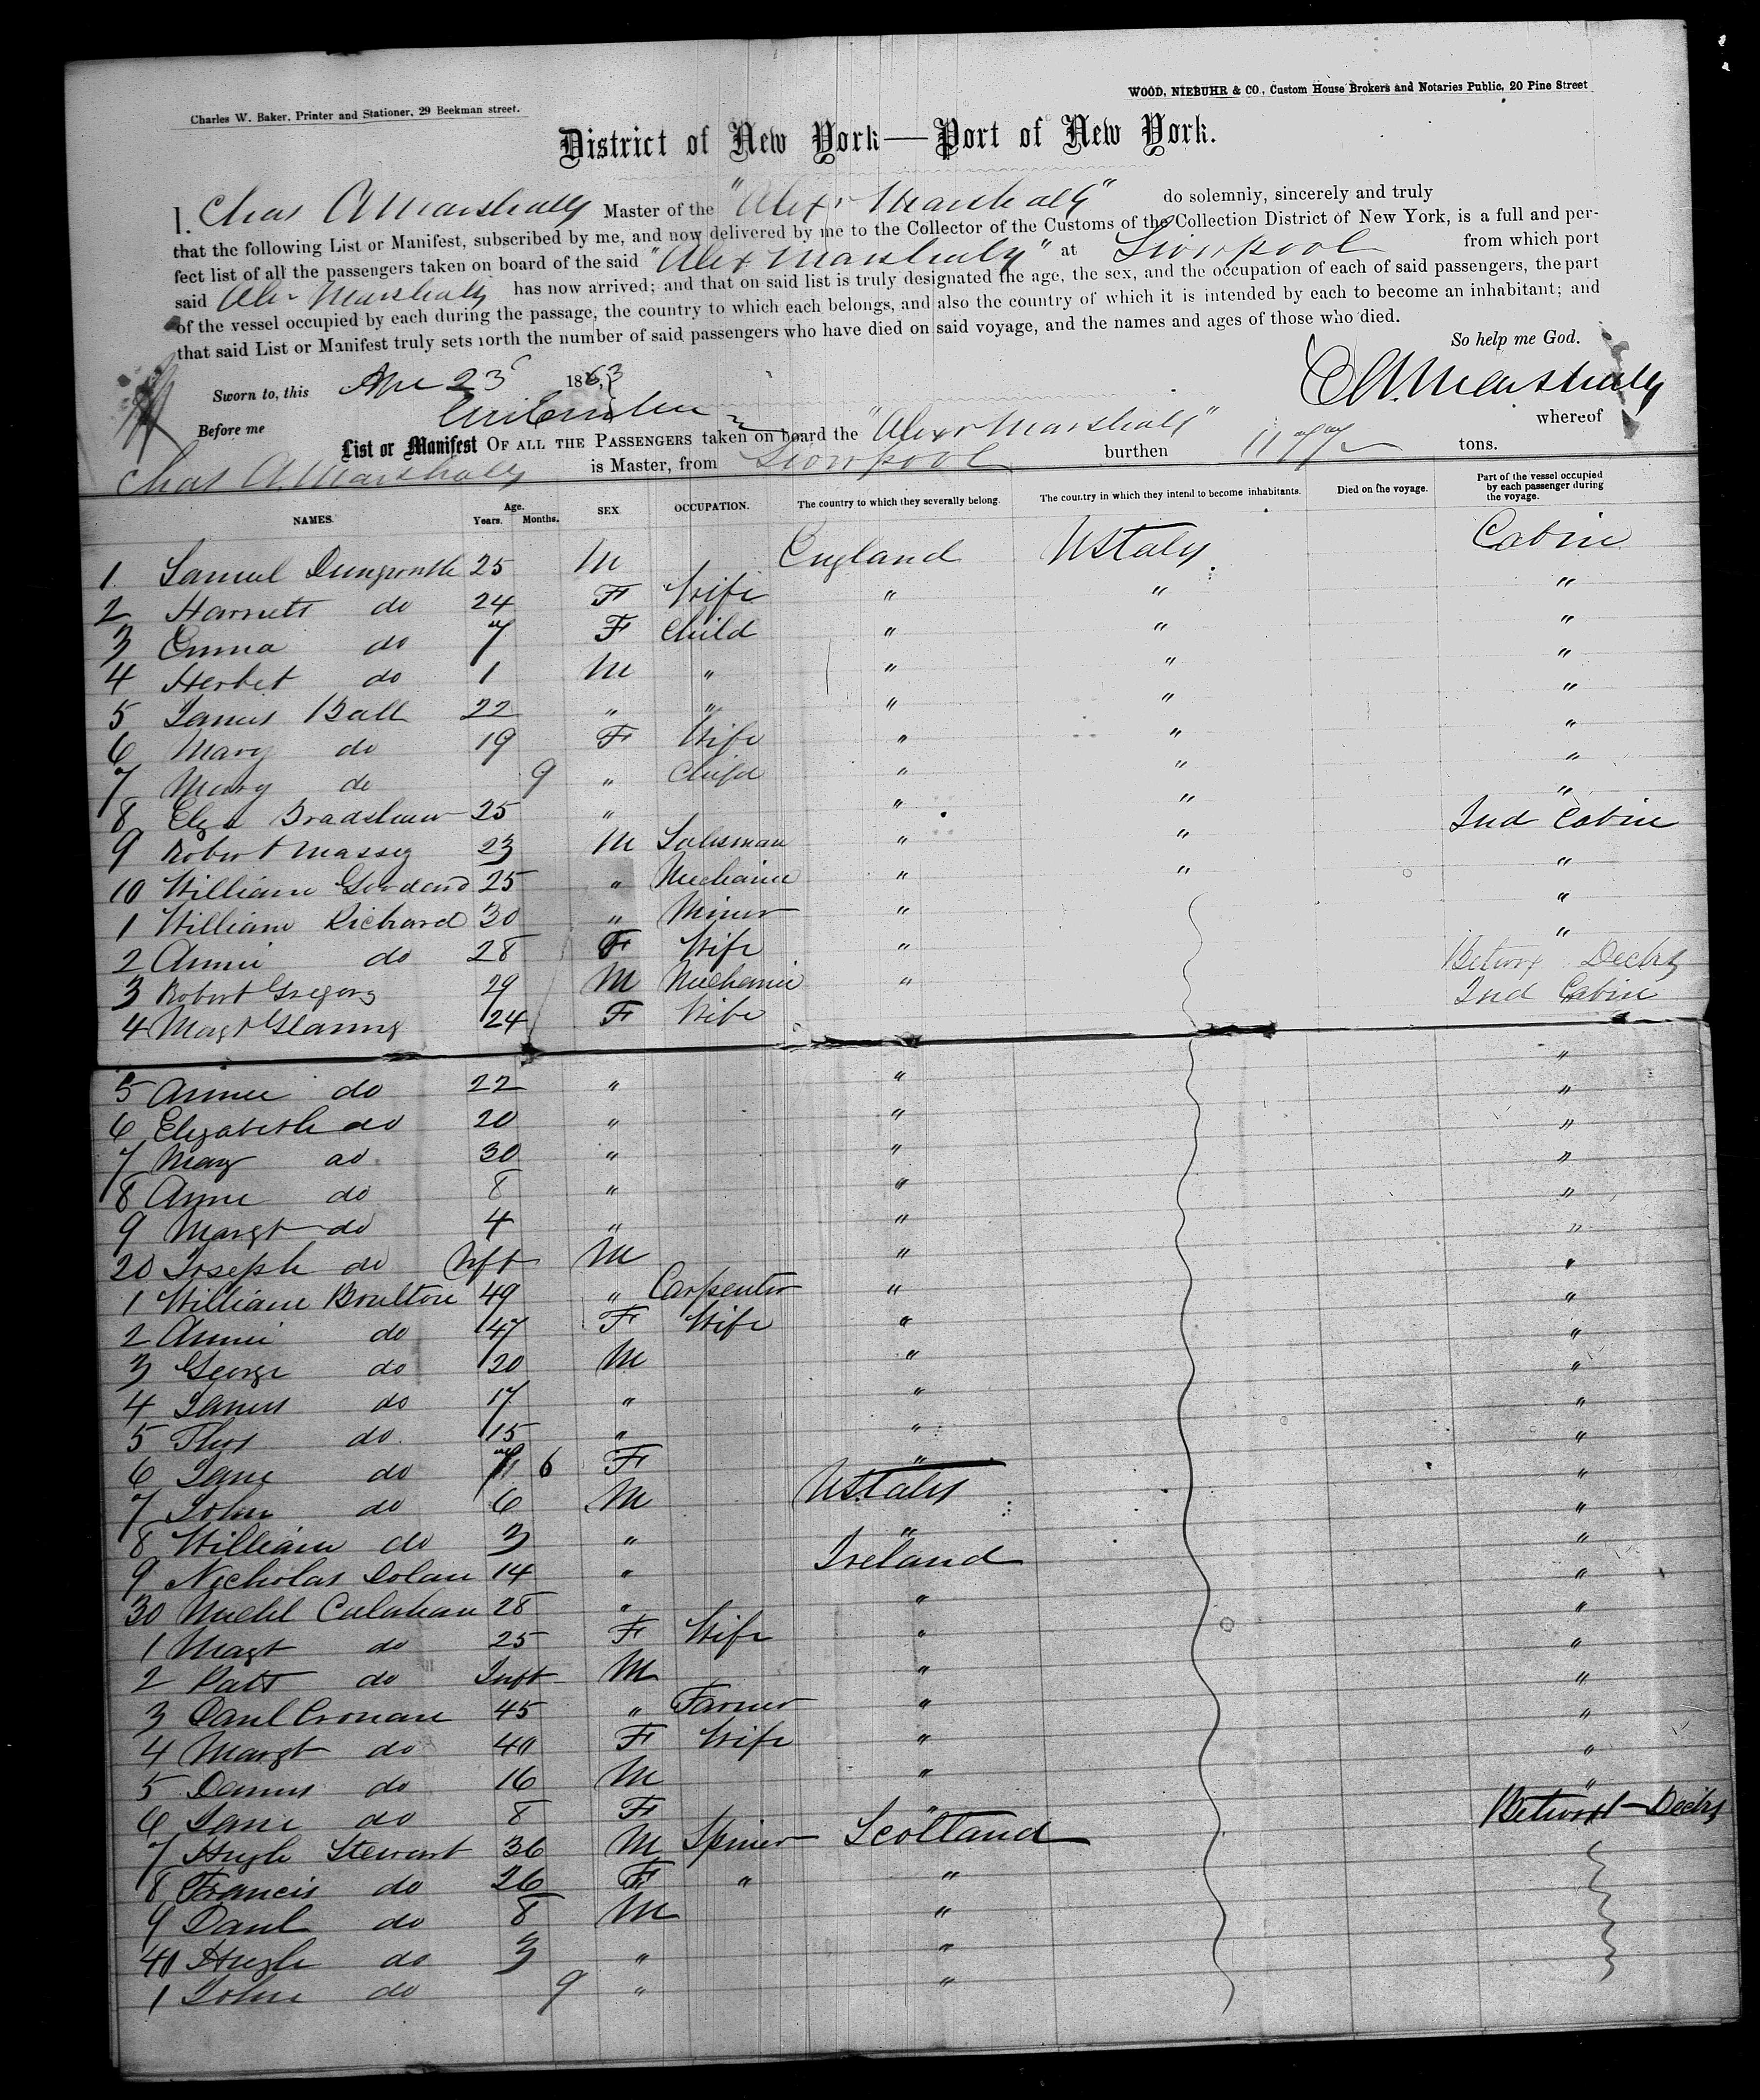 Charles W. Baker, Printer and Stationer, 29 Beekman street.
WOOD, NIEBUHR & CO., Custom House Brokers and Notaries Public, 20 Pine Street
District of New York—Port of New York.
I. Chas A Marshall Master of the "Alexr Marshall" do solemnly, sincerely and truly
that the following List or Manifest, subscribed by me, and now delivered by me to the Collector of the Customs of the Collection District of New York, is a full and per-
fect list of all the passengers taken on board of the said "Alex Marshall" at Liverpool from which port
said Alexr Marshall has now arrived; and that on said list is truly designated the age, the sex, and the occupation of each of said passengers, the part
of the vessel occupied by each during the passage, the country to which each belongs, and also the country of which it is intended by each to become an inhabitant; and
that said List or Manifest truly sets forth the number of said passengers who have died on said voyage, and the names and ages of those who died.
So help me God.
Sworn to, this 23 1863
C A Marshall
Before me
List or Manifest OF ALL THE PASSENGERS taken on board the "Alexr Marshall" whereof
Chas A. Marshall is Master, from Liverpool burthen 1177 tons.
NAMES. Age. Years. Months. SEX. OCCUPATION. The country to which they severally belong. The country in which they intend to become inhabitants. Died on the voyage. Part of the vessel occupied by each passenger during the voyage.
1 Samuel 25 M England UStates Cabin
2 Harriett do 24 F Wife " " "
3 Emma do 7 F Child " " "
4 Herbet do 1 M " " " "
5 James Ball 22 " " " " "
6 Mary do 19 F Wife " " "
7 Mary do 9 " Child " " "
8 Eliza Bradshaw 25 " " " "
9 Robert Massey 23 M Salisman " " 2nd Cabin
10 William 25 " Mechanic " " "
1 William Richard 30 " Miner " "
2 Annie do 28 F Wife " "
3 Robert Gregory 29 M Mechanic " Betwx Decks
4 Magt 24 F Wife 2nd Cabin
5 Annie do 22 " " "
6 Elizabeth do 20 " " "
7 Mary do 30 " " "
8 Anne do 8 " " "
9 Margt do 4 " " "
20 Joseph do Inft M " "
1 William Boulton 49 " Carpenter " "
2 Annie do 47 F Wife " "
3 George do 20 M " "
4 James do 17 " " "
5 Thos do 15 " " "
6 Jane do 11 6 F " "
7 John do 6 M UStates "
8 William do 3 " " "
9 Nicholas Dolan 14 " Ireland "
30 Michl Calahan 28 " " "
1 Magt do 25 F Wife " "
2 Patt do Inft M " "
3 Danl Cronan 45 " Farmer " "
4 Margt do 40 F Wife " "
5 Dennis do 16 M " "
6 Jane do 8 F " "
7 Hugh Stewart 36 M Spiner Scotland Betwxt Decks
8 Francis do 26 F " "
9 Danl do 8 M "
40 Hugh do 3 " "
1 John do 9 " "